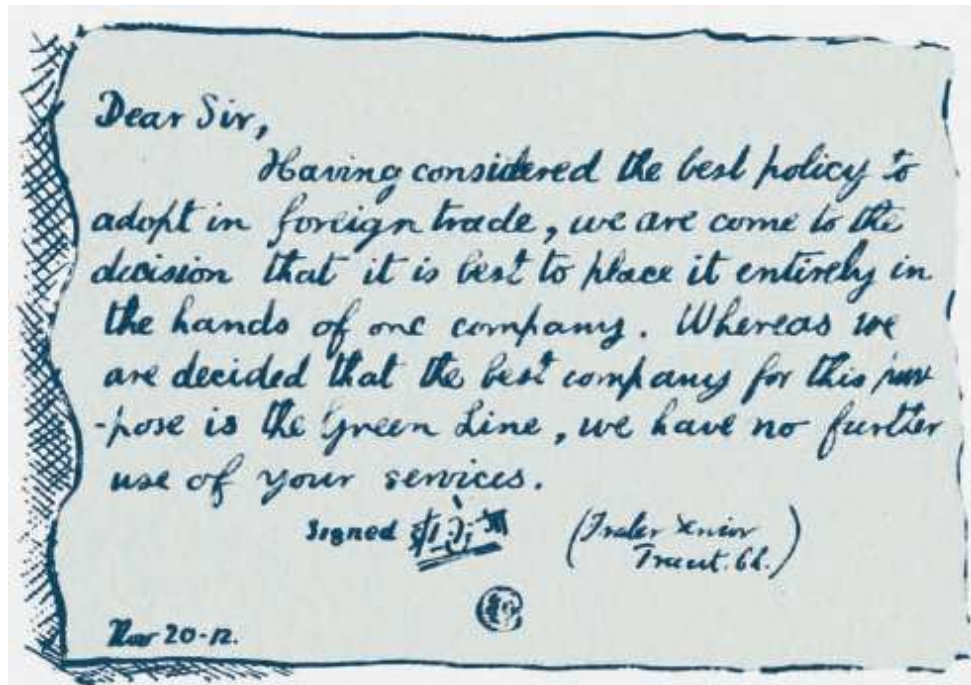 Dear Sir,
Having considered the best policy to
adopt in foreign trade, we are come to the
decision that it is best to place it entirely in
the hands of one company. Whereas we
are decided that the best company for this pur
-pose is the Green Line, we have no further
use of your services.
Signed
20-12.